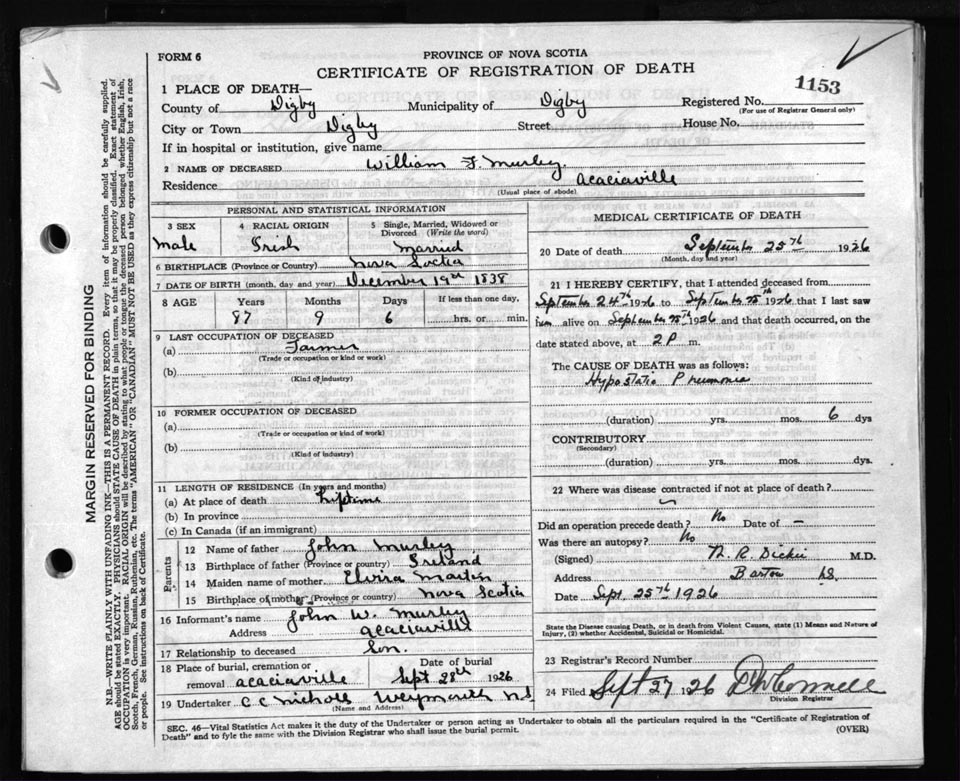 FORM 6
PROVINCE OF NOVA SCOTIA
CERTIFICATE OF REGISTRATION OF DEATH
1153
1 PLACE OF DEATH—
County of Digby Municipality of Digby Registered No.
(For use of Registrar General only)
City or Town Digby Street House No.
If in hospital or institution, give name
2 NAME OF DECEASED William F Murley.
Residence Acaciaville
(Usual place of abode)
PERSONAL AND STATISTICAL INFORMATION
3 SEX 4 RACIAL ORIGIN 5 Single, Married, Widowed or Divorced (Write the word)
Male Irish Married
6 BIRTHPLACE (Province or Country) Nova Scotia
7 DATE OF BIRTH (month, day and year) December 19th 1838
8 AGE Years Months Days If less than one day,
87 9 6 hrs. or min.
9 LAST OCCUPATION OF DECEASED
(a) Farmer
(Trade or occupation or kind or work)
(b)
(Kind of industry)
10 FORMER OCCUPATION OF DECEASED
(a)
(Trade or occupation or kind of work)
(b)
(Kind of industry)
11 LENGTH OF RESIDENCE (In years and months)
(a) At place of death Lifetime
(b) In province
(c) In Canada (if an immigrant)
Parents
12 Name of father John Murley
13 Birthplace of father (Province or country) Ireland
14 Maiden name of mother Elvira Martin
15 Birthplace of mother (Province or country) Nova Scotia
16 Informant's name John W. Murley
Address Acaciaville
17 Relationship to deceased Son.
18 Place of burial, cremation or removal Acaciaville Date of burial Sept 28th 1926
19 Undertaker C C Nicholl Weymouth N S
(Name and Address)
MEDICAL CERTIFICATE OF DEATH
20 Date of death September 25th 1926
(Month, day and year)
21 I HEREBY CERTIFY, that I attended deceased from
September 24th 1926 to September 25th 1926 that I last saw
him alive on September 25th 1926 and that death occurred, on the
date stated above, at 2 P m.
The CAUSE OF DEATH was as follows:
Hypostatic Pneumonia
(duration) yrs. mos. 6 dys
CONTRIBUTORY
(Secondary)
(duration) yrs. mos. dys.
22 Where was disease contracted if not at place of death?
Did an operation precede death? No Date of —
Was there an autopsy? No
(Signed) R. Dickie M.D.
Address Barton NS.
Date Sept. 25th 1926
State the Disease causing Death, or in death from Violent Causes, state (1) Means and Nature of
Injury, (2) whether Accidental, Suicidal or Homicidal.
23 Registrar's Record Number
24 Filed Sept 27 1926
Division Registrar
SEC. 46—Vital Statistics Act makes it the duty of the Undertaker or person acting as Undertaker to obtain all the particulars required in the "Certificate of Registration of
Death" and to fyle the same with the Division Registrar who shall issue the burial permit.
(OVER)
MARGIN RESERVED FOR BINDING
N.B.—WRITE PLAINLY WITH UNFADING INK—THIS IS A PERMANENT RECORD. Every item of information should be carefully supplied.
AGE should be stated EXACTLY. PHYSICIANS should STATE CAUSE OF DEATH in plain terms, so that it may be properly classified. Exact statement of
OCCUPATION is very important. RACIAL ORIGIN will be described by stating to what people or tongue the deceased person belonged whether English, Irish,
Scotch, French, German, Russian, Ruthenian, etc. The terms "AMERICAN" OR "CANADIAN" MUST NOT BE USED as they express citizenship but not a race
or people. See instructions on back of Certificate.